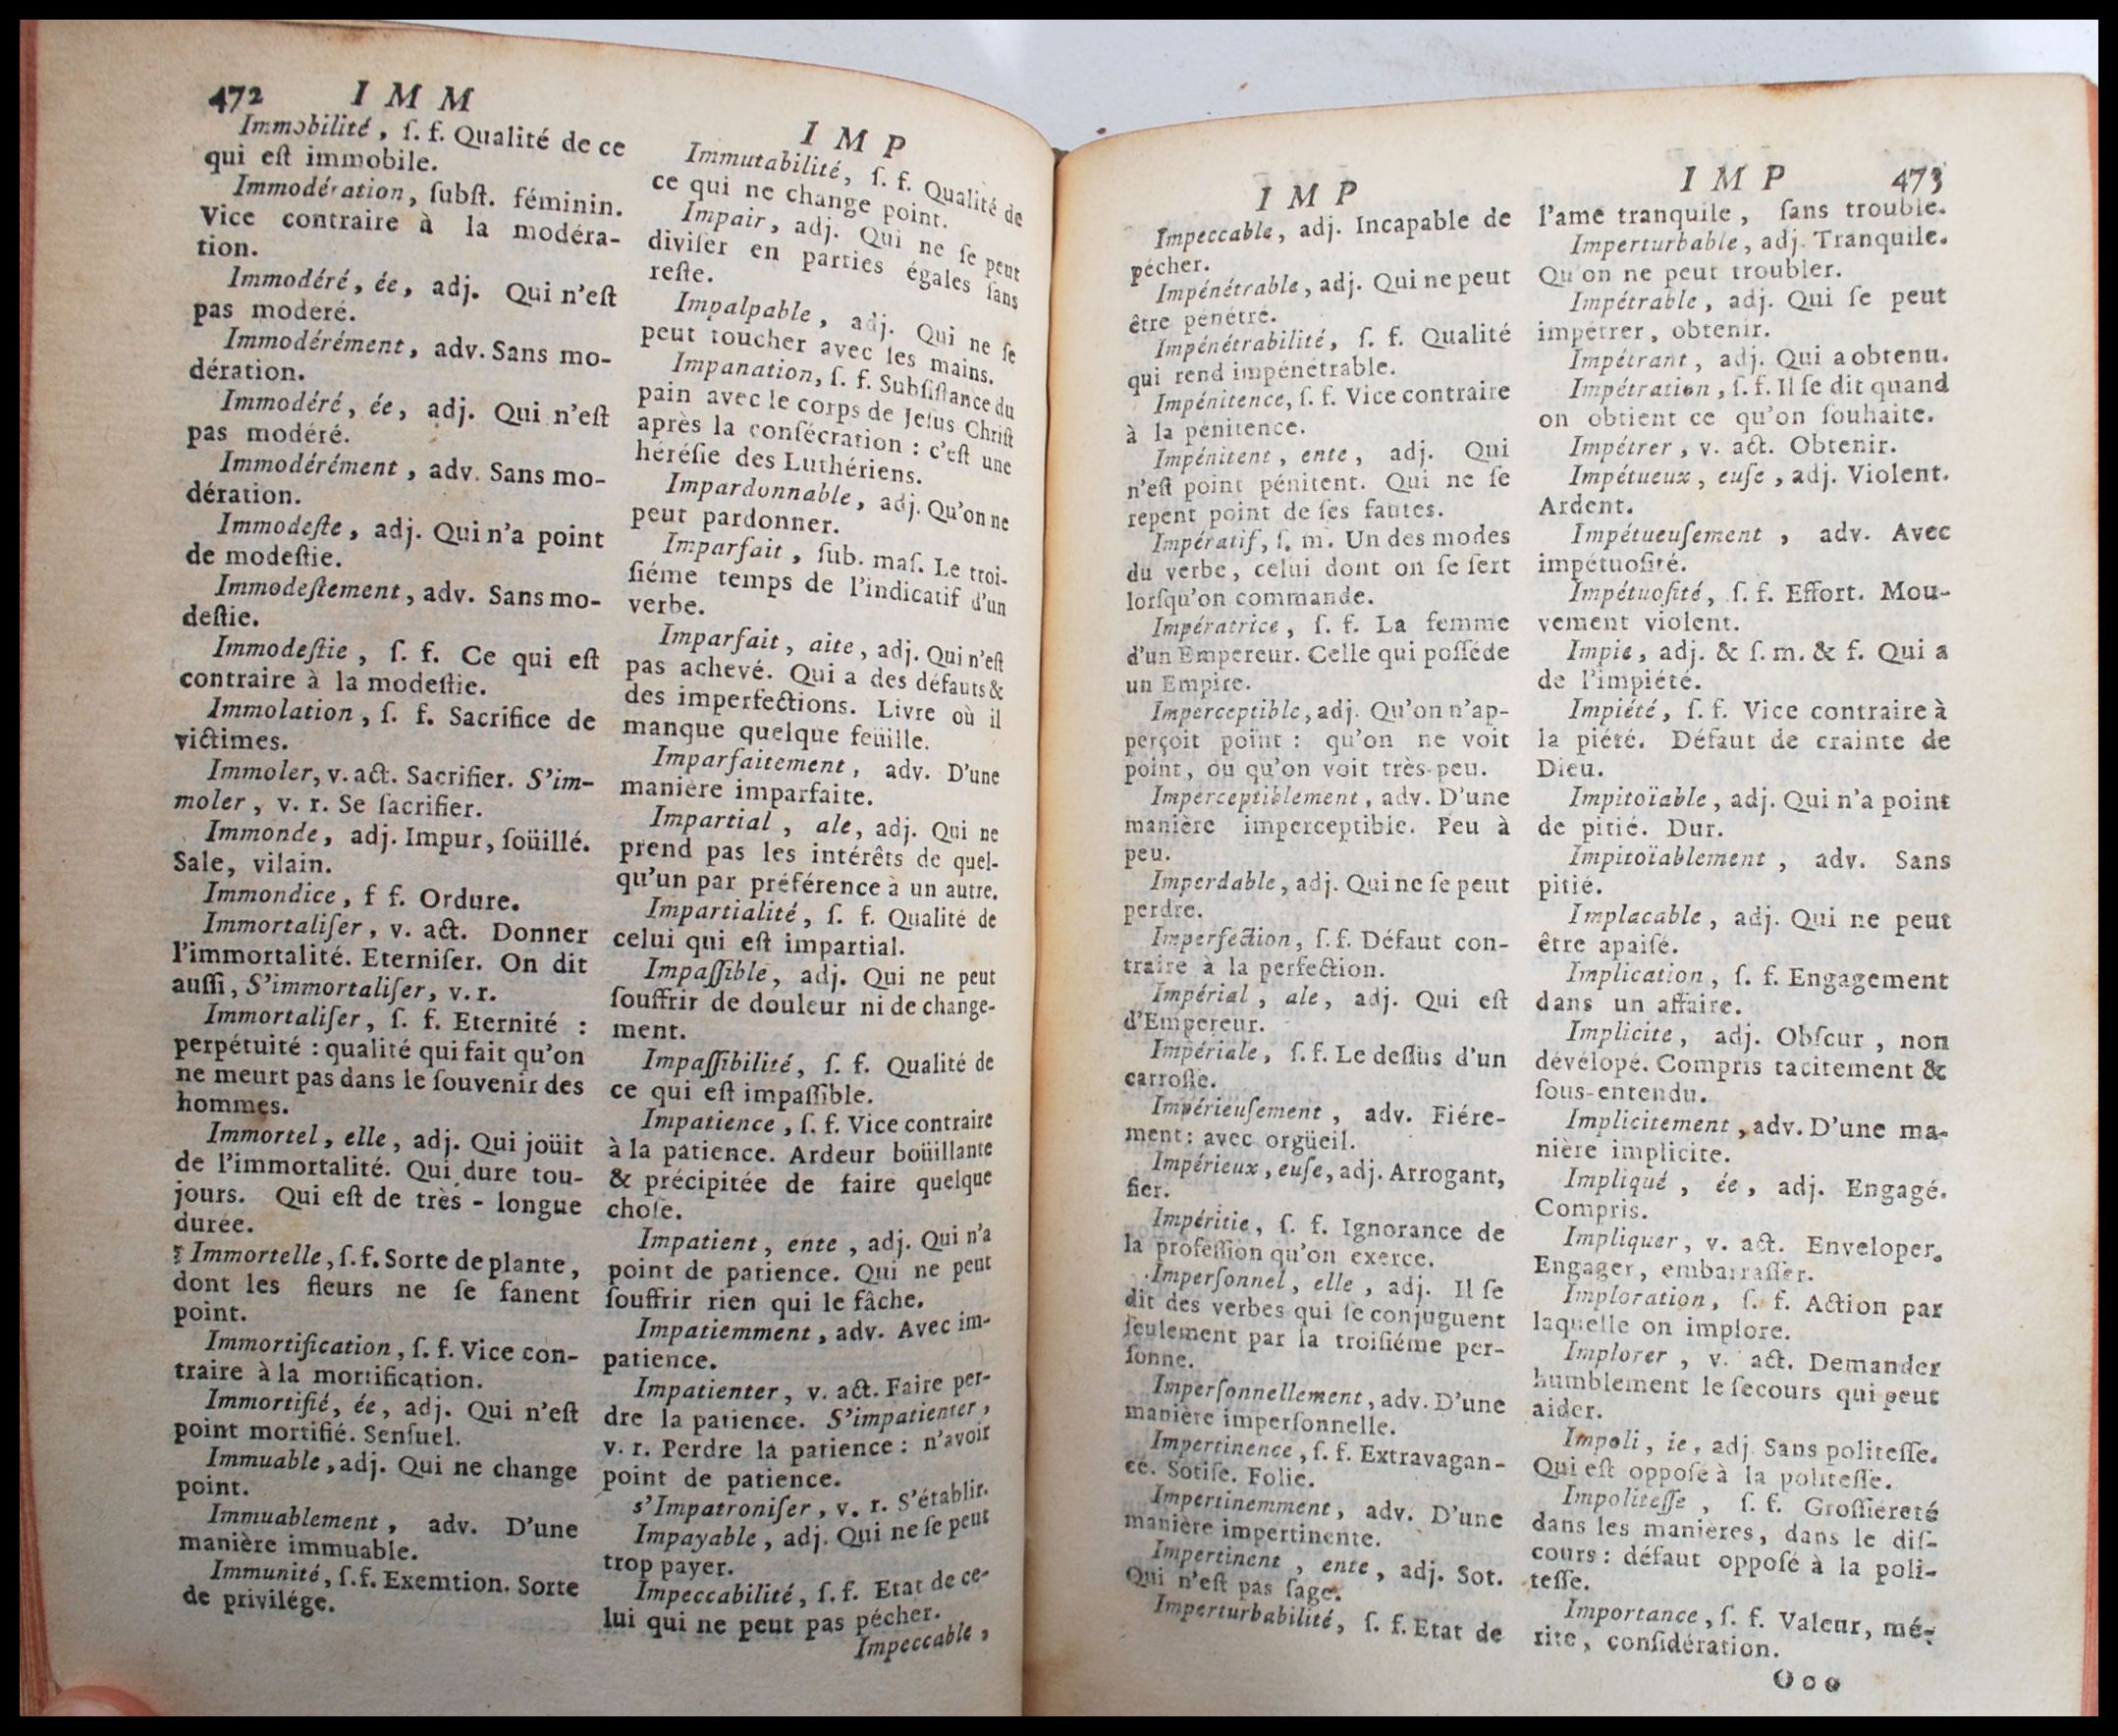 472 IMM
Immobilité, ſ. f. Qualité de ce
qui eſt immobile.
Immodération, ſubſt. féminin.
Vice contraire à la modéra-
tion.
Immodéré, ée, adj. Qui n'eſt
pas moderé.
Immodérément, adv. Sans mo-
dération.
Immodéré, ée, adj. Qui n'eſt
pas modéré.
Immodérément, adv. Sans mo-
dération.
Immodeſte, adj. Qui n'a point
de modeſtie.
Immodeſtement, adv. Sans mo-
deſtie.
Immodeſtie, ſ. f. Ce qui eſt
contraire à la modeſtie.
Immolation, ſ. f. Sacrifice de
victimes.
Immoler, v. act. Sacrifier. S'im-
moler, v. r. Se ſacrifier.
Immonde, adj. Impur, ſoüillé.
Sale, vilain.
Immondice, f f. Ordure.
Immortaliſer, v. act. Donner
l'immortalité. Eterniſer. On dit
auſſi, S'immortaliſer, v. r.
Immortaliſer, ſ. f. Eternité :
perpétuité : qualité qui fait qu'on
ne meurt pas dans le ſouvenir des
hommes.
Immortel, elle, adj. Qui joüit
de l'immortalité. Qui dure tou-
jours. Qui eſt de très - longue
durée.
Immortelle, ſ. f. Sorte de plante,
dont les fleurs ne ſe fanent
point.
Immortification, ſ. f. Vice con-
traire à la mortification.
Immortifié, ée, adj. Qui n'eſt
point mortifié. Senſuel.
Immuable, adj. Qui ne change
point.
Immuablement, adv. D'une
manière immuable.
Immunité, ſ. f. Exemtion. Sorte
de privilége.
IMP
Immutabilité, ſ. f. Qualité de
ce qui ne change point.
Impair, adj. Qui ne ſe peut
diviſer en parties égales ſans
reſte.
Impalpable, adj. Qui ne ſe
peut toucher avec les mains.
Impanation, ſ. f. Subſiſtance du
pain avec le corps de Jeſus Chriſt
après la conſécration : c'eſt une
héréſie des Luthériens.
Impardonnable, adj. Qu'on ne
peut pardonner.
Imparfait, ſub. maſ. Le troi-
ſiéme temps de l'indicatif d'un
verbe.
Imparfait, aite, adj. Qui n'eſt
pas achevé. Qui a des défauts &
des imperfections. Livre où il
manque quelque feüille.
Imparfaitement, adv. D'une
manière imparfaite.
Impartial, ale, adj. Qui ne
prend pas les intérêts de quel-
qu'un par préférence à un autre.
Impartialité, ſ. f. Qualité de
celui qui eſt impartial.
Impaſſible, adj. Qui ne peut
ſouffrir de douleur ni de change-
ment.
Impaſſibilité, ſ. f. Qualité de
ce qui eſt impaſſible.
Impatience, ſ. f. Vice contraire
à la patience. Ardeur boüillante
& précipitée de faire quelque
choſe.
Impatient, ente, adj. Qui n'a
point de patience. Qui ne peut
ſouffrir rien qui le fâche.
Impatiemment, adv. Avec im-
patience.
Impatienter, v. act. Faire per-
dre la patience. S'impatienter,
v. r. Perdre la patience : n'avoir
point de patience.
s'Impatroniſer, v. r. S'établir.
Impayable, adj. Qui ne ſe peut
trop payer.
Impeccabilité, ſ. f. Etat de ce-
lui qui ne peut pas pécher.
Impeccable,
IMP
Impeccable, adj. Incapable de
pécher.
Impénétrable, adj. Qui ne peut
être pénétré.
Impénétrabilité, ſ. f. Qualité
qui rend impénétrable.
Impénitence, ſ. f. Vice contraire
à la pénitence.
Impénitent, ente, adj. Qui
n'eſt point pénitent. Qui ne ſe
repent point de ſes fautes.
Impératif, ſ. m. Un des modes
du verbe, celui dont on ſe ſert
lorſqu'on commande.
Impératrice, ſ. f. La femme
d'un Empereur. Celle qui poſſéde
un Empire.
Imperceptible, adj. Qu'on n'ap-
perçoit point : qu'on ne voit
point, ou qu'on voit très-peu.
Imperceptiblement, adv. D'une
manière imperceptible. Peu à
peu.
Imperdable, adj. Qui ne ſe peut
perdre.
Imperfection, ſ. f. Défaut con-
traire à la perfection.
Impérial, ale, adj. Qui eſt
d'Empereur.
Impériale, ſ. f. Le deſſus d'un
carroſſe.
Impérieuſement, adv. Fiére-
ment : avec orgüeil.
Impérieux, euſe, adj. Arrogant,
fier.
Impéritie, ſ. f. Ignorance de
la profeſſion qu'on exerce.
Imperſonnel, elle, adj. Il ſe
dit des verbes qui ſe conjuguent
ſeulement par la troiſiéme per-
ſonne.
Imperſonnellement, adv. D'une
manière imperſonnelle.
Impertinence, ſ. f. Extravagan-
ce. Sotiſe. Folie.
Impertinemment, adv. D'une
manière impertinente.
Impertinent, ente, adj. Sot.
Qui n'eſt pas ſage.
Imperturbabilité, ſ. f. Etat de
IMP 473
l'ame tranquile, ſans trouble.
Imperturbable, adj. Tranquile.
Qu'on ne peut troubler.
Impétrable, adj. Qui ſe peut
impétrer, obtenir.
Impétrant, adj. Qui a obtenu.
Impétration, ſ. f. Il ſe dit quand
on obtient ce qu'on ſouhaite.
Impétrer, v. act. Obtenir.
Impétueux, euſe, adj. Violent.
Ardent.
Impétueuſement, adv. Avec
impétuoſité.
Impétuoſité, ſ. f. Effort. Mou-
vement violent.
Impie, adj. & ſ. m. & f. Qui a
de l'impiété.
Impiété, ſ. f. Vice contraire à
la piété. Défaut de crainte de
Dieu.
Impitoïable, adj. Qui n'a point
de pitié. Dur.
Impitoïablement, adv. Sans
pitié.
Implacable, adj. Qui ne peut
être apaiſé.
Implication, ſ. f. Engagement
dans un affaire.
Implicite, adj. Obſcur, non
dévelopé. Compris tacitement &
ſous-entendu.
Implicitement, adv. D'une ma-
nière implicite.
Impliqué, ée, adj. Engagé.
Compris.
Impliquer, v. act. Enveloper.
Engager, embarraſſer.
Imploration, ſ. f. Action par
laquelle on implore.
Implorer, v. act. Demander
humblement le ſecours qui peut
aider.
Impoli, ie, adj Sans politeſſe.
Qui eſt oppoſé à la politeſſe.
Impoliteſſe, ſ. f. Groſſiereté
dans les manières, dans le diſ-
cours : défaut oppoſé à la poli-
teſſe.
Importance, ſ. f. Valeur, mé-
rite, conſidération.
Ooo